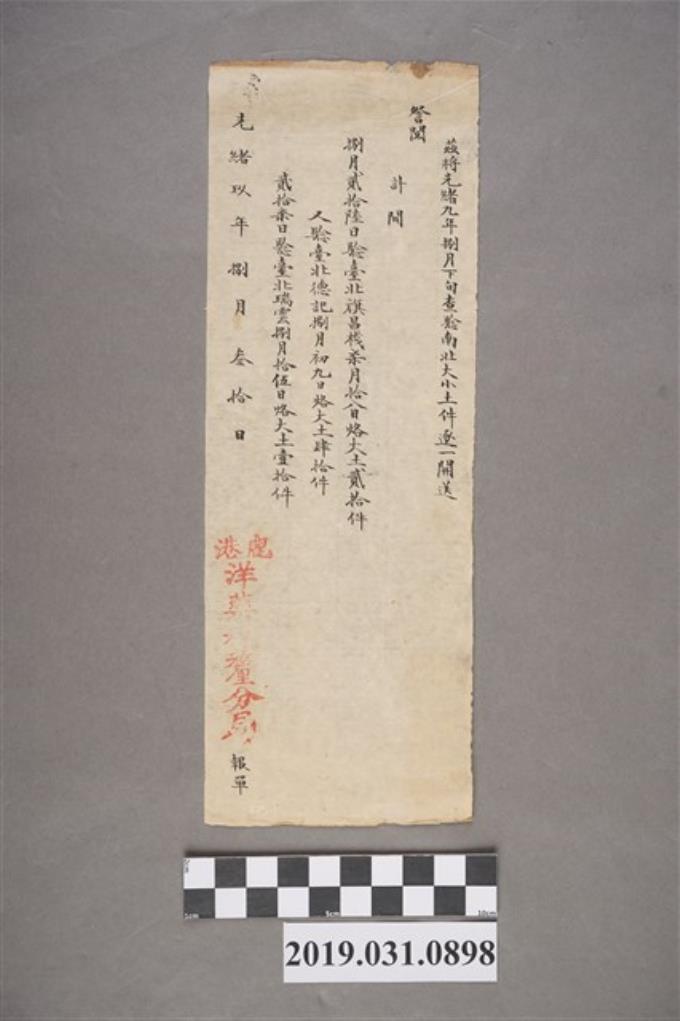 茲將光緒九年捌月下旬查驗南北大小土件逐一開送
詧閱
計開
捌月貳拾陸日驗臺北旗昌棧柒月拾八日烙大土貳拾件
又驗臺北德記捌月初九日烙大土肆拾件
貳拾柒日驗臺北瑞雲捌月拾伍日烙大土壹拾件
光緒玖年捌月叁拾日
鹿港
洋藥 釐分局
報單
1cm 5cm 10cm
2019.031.0898